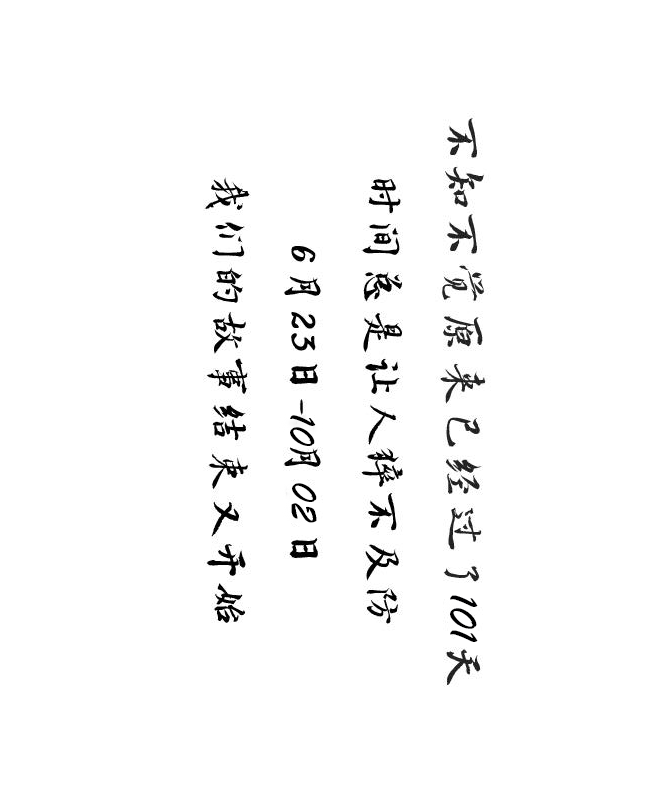 不知不觉原来已经过了101天
时间总是让人猝不及防
6月23日-10月02日
我们的故事结束又开始